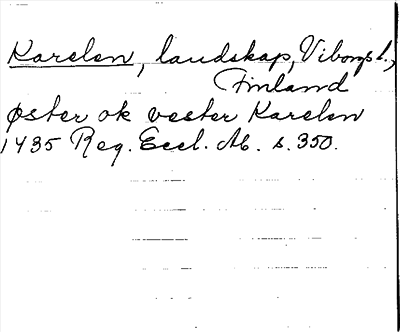 Karelen, landskap, Viborgs l.,
Finland
øster ok vester Karelen
1435 Reg. Eccl. Ab. s. 350.